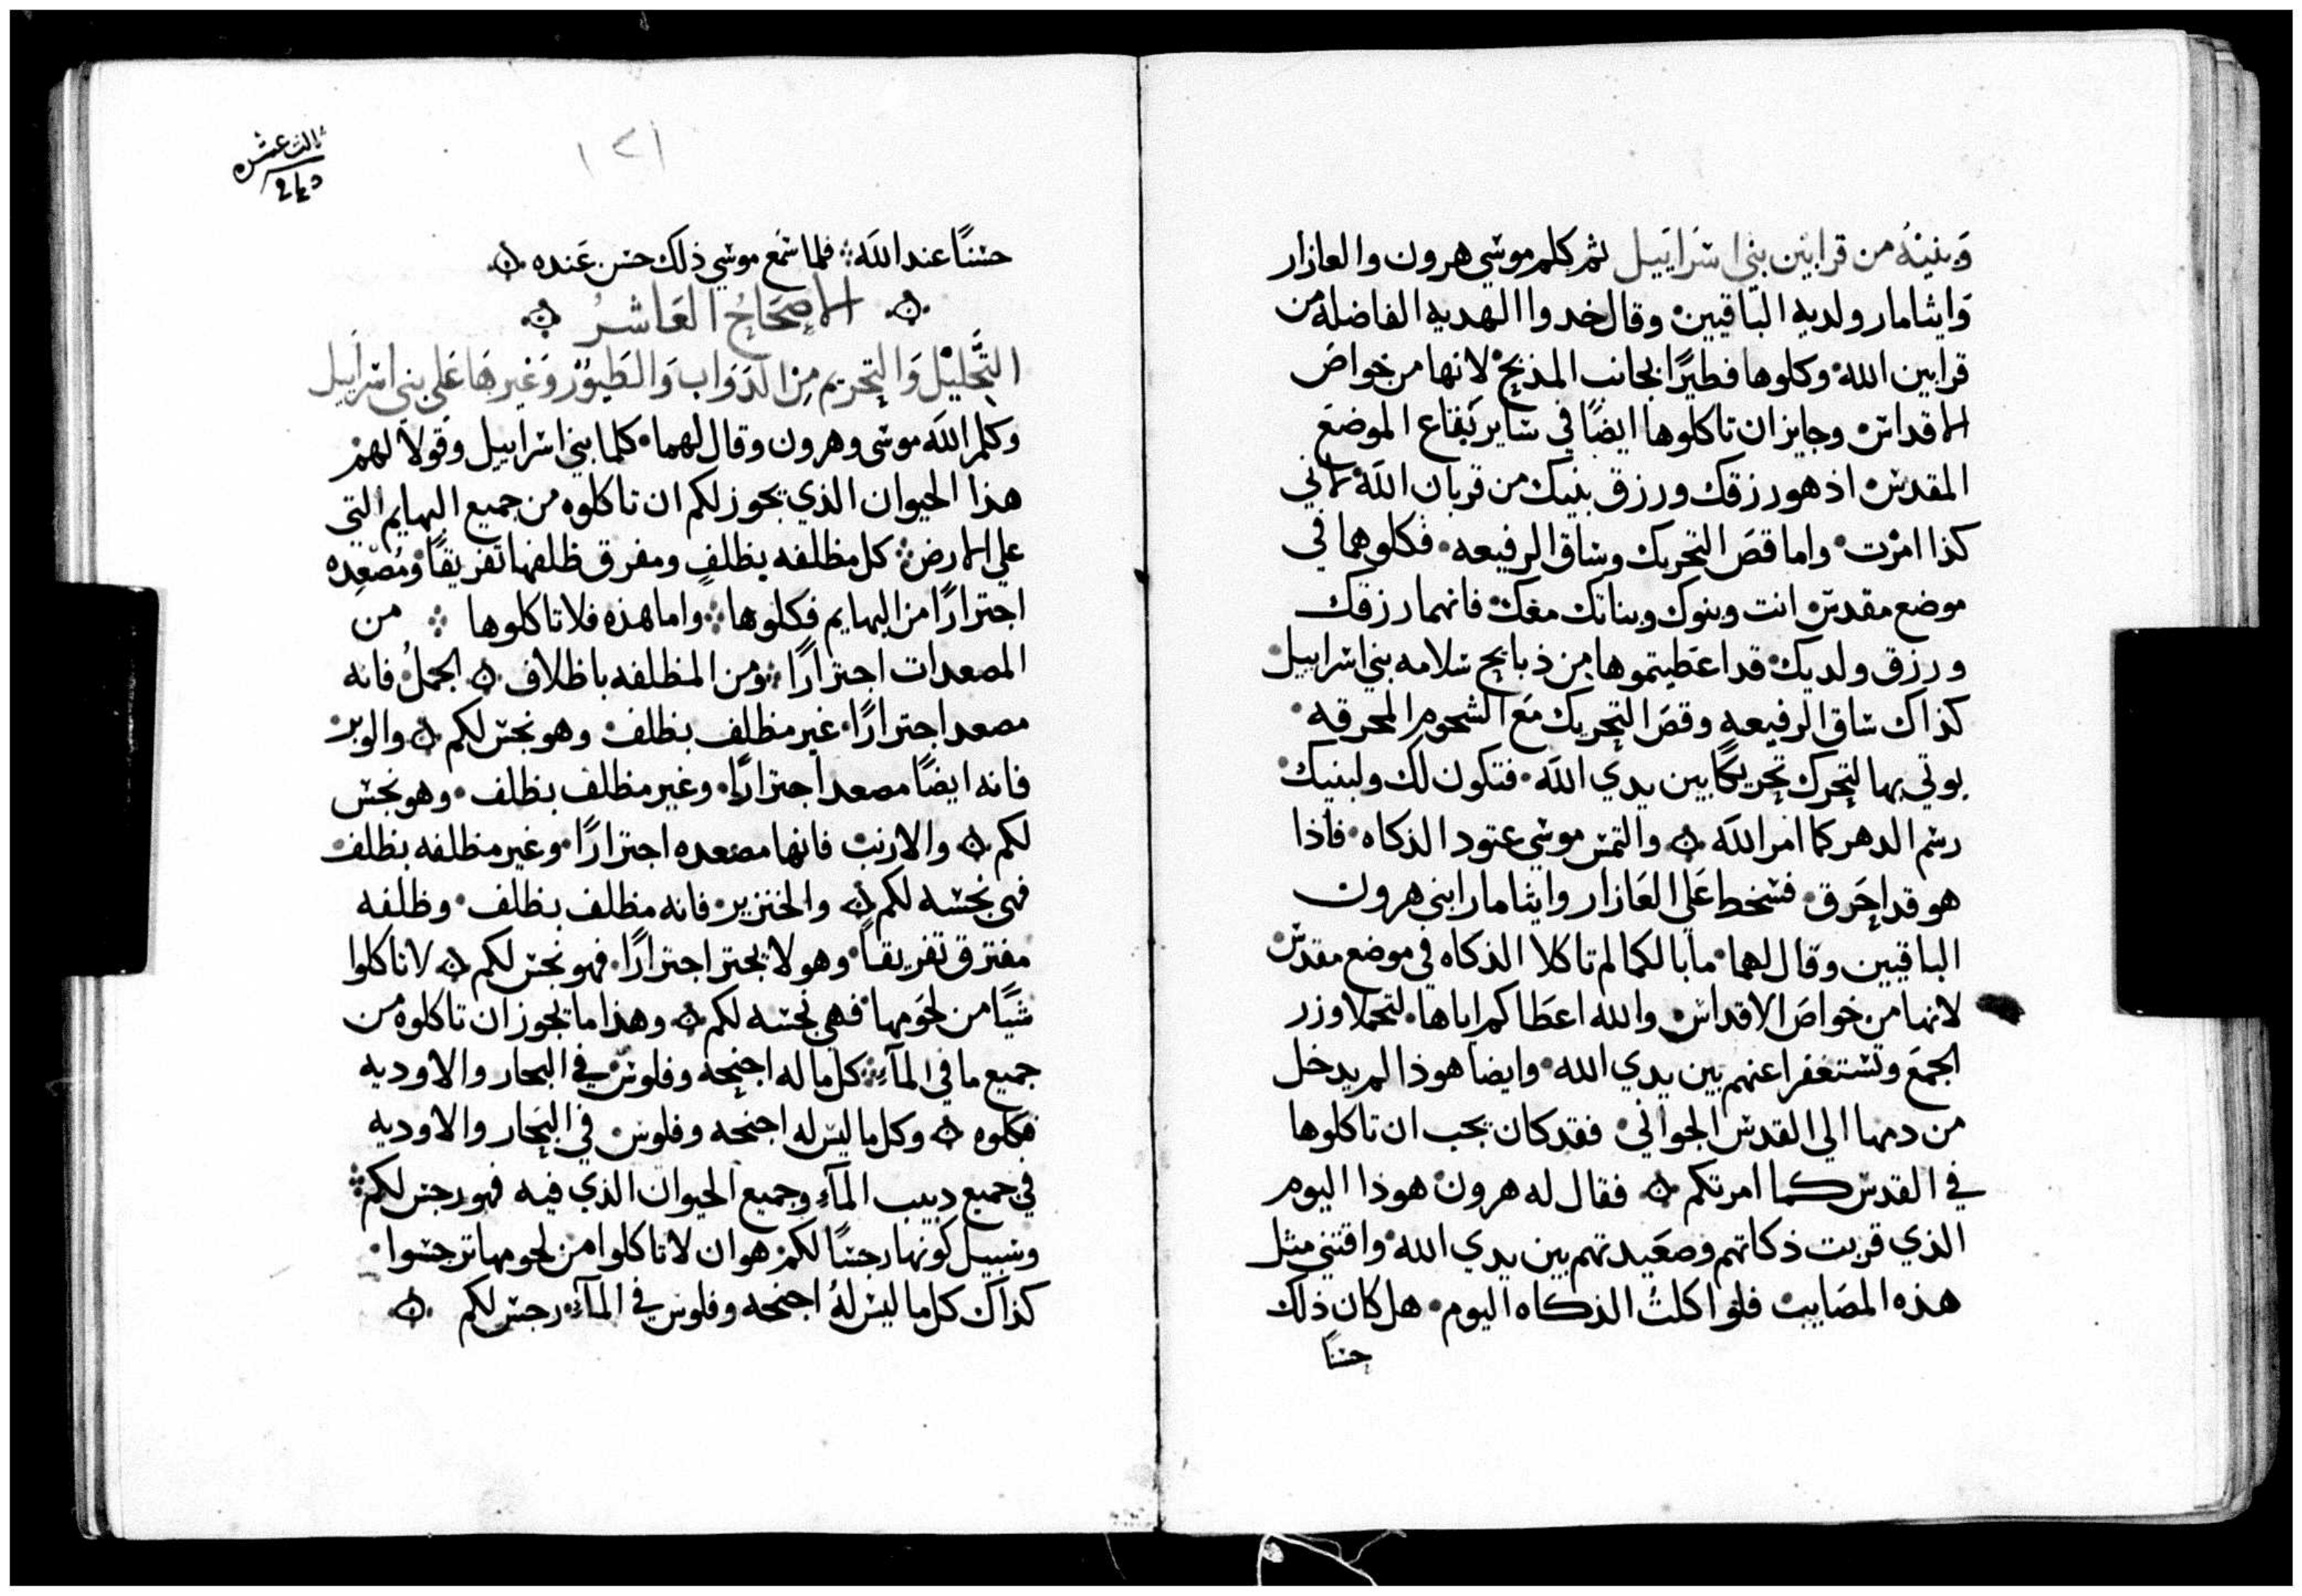 وبنيهُ من قرابين بني اسَرايَيل ثم كلم موسي هرون والعازار
وَايثامار ولديه الباقيين وقال خدوا الهديه الفاضله من
قرابين الله وكلوها فطيرًا بجانب المذبح لانها من خواص
الاقداس وجايز ان تاكلوها ايضًا في ساير بَقاع الموضعَ
المقدس اذ هو رزقك ورزق بنيك من قربان الله لاني
كذا امرت واما قصَ التحريك وساق الرفيعه فكلوهما في
موضع مقدس انت وبنوك وبناتك معَك فانهما رزقك
ورزق ولديك قد اعَطيتموها من ذبايح سلامه بني اسراييل
كذاك ساق الرفيعه وقصَ التحريك مَع الشحوم المحرقه
يوتي بها لتحرك تحريكًا بين يدي الله فتكون لك ولبنيك
رسم الدهر كما امر الله والتمس موسي عتود الذكاه فاذا
هو قد احَرق فسخط عَلي العَازار وايثامار ابني هرون
الباقيين وقال لهما ما بالكما لم تاكلا الذكاه في موضع مقدس
لانها من خواصَ الاقداس والله اعَطاكم اياها لتحملا وزر
الجمعَ وتستغفرا عنهم بين يدي الله وايضا هوذا لم يدخل
من دمها الي القدس الجواني فقد كان يجب ان تاكلوها
في القدس كما امرتكم فقال له هرون هوذا اليوم
الذي قربت ذكاتهم وصعَيدتهم بين يدي الله وافتني مثل
هذه المصَايب فلو اكلتُ الذكاه اليوم هل كان ذلك
حسنًا
ثالث عشره
١٢١
حسنًا عند الله فلما سَمع موسي ذلك حسن عَنده
الاصحَاحُ العَاشرُ
التَّحليْل وَالتحريم مِن الدَوَاب وَالطيوُر وَغيرهَا عَلي بني اسراييل
وكلم الله موسي وهرون وقال لهما كلما بني اسراييل وقولا لهم
هذا الحيوان الذي يجوز لكم ان تاكلوه من جميع البهايم التي
علي الارض كل مظلفه بظلفٍ ومفرق ظلفها تفريقًا ومُصَعِده
اجترارًا من البهايم فكلوها واما هذه فلا تاكلوها من
المصعدات اجترارًا ومن المظلفه باظلاف الجملُ فانه
مصعد اجترارًا غير مظلف بظلف وهو نجس لكم والوبر
فانه ايضًا مصعد اجترارًا وغير مظلف بظلف وهو نجس
لكم والارنب فانها مصعده اجترارًا وغير مظلفه بظلف
فهي نجسه لكم والخنزير فانه مظلف بظلف وظلفه
مفترق تفريقًا وهو لا يجتر اجترارًا فهو نجس لكم لا تاكلوا
شيًا من لحَومها فهي نجسه لكم وهذا ما يجوز ان تاكلوه من
جميع ما في المآءِ كل ما له اجنحه وفلوس في البحار والاوديه
فكلوه وكل ما ليس له اجنحه وفلوس في البَحار والاوديه
في جميع دبيب المآءِ وجميع الحيوان الذي فيه فهو رجس لكم
وسبيل كونها رجسًا لكم هو ان لا تاكلوا من لحومها ترجسوا
كذاك كل ما ليس لهُ اجنحه وفلوس في المآءِ رجس لكم